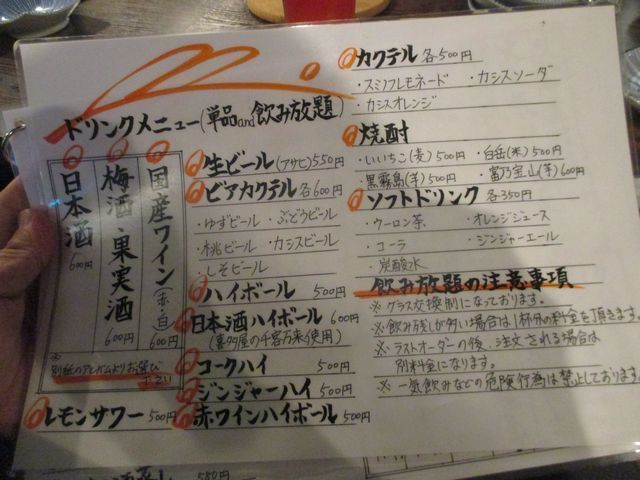 ドリンクメニュー(単品and飲み放題)
国産ワイン(赤・白) 600円
梅酒・果実酒 600円
日本酒 600円
※別紙のアルバムよりお選び下さい
レモンサワー 500円
生ビール(アサヒ) 550円
ビアカクテル 各600円
・ゆずビール ・ぶどうビール
・桃ビール ・カシスビール
・しそビール
ハイボール 500円
日本酒ハイボール 600円
(喜多屋の千客万来使用)
コークハイ 500円
ジンジャーハイ 500円
赤ワインハイボール 500円
カクテル 各500円
・スミノフレモネード ・カシスソーダ
・カシスオレンジ
焼酎
・いいちこ(麦)500円 ・白岳(米)500円
・黒霧島(芋)500円 ・富乃宝山(芋)600円
ソフトドリンク 各350円
・ウーロン茶 ・オレンジジュース
・コーラ ・ジンジャーエール
・炭酸水
飲み放題の注意事項
※グラス交換制になっております。
※飲み残しが多い場合は1杯分の料金を頂きます。
※ラストオーダーの後、注文される場合は
別料金になります。
※一気飲みなどの危険行為は禁止しております
580円